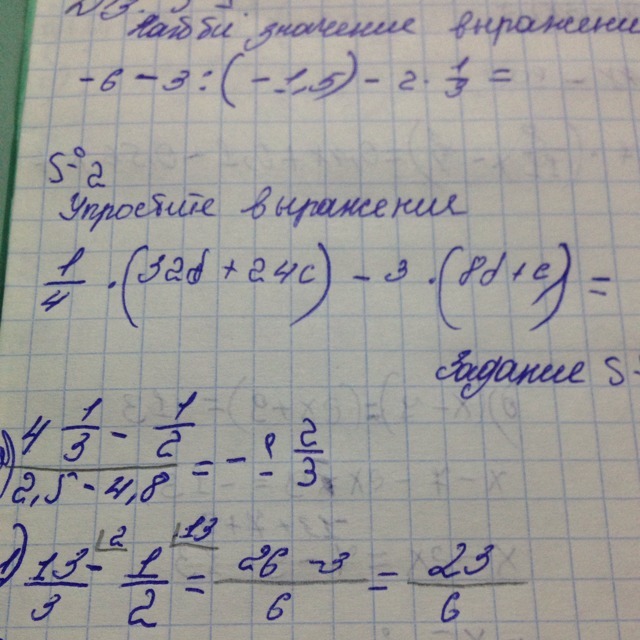 Найти значение выражени
-6 - 3 : (-1,5) - 2 · 1/3 =
№2
Упростите выражения
1/4 · (32d + 24c) - 3 · (8d + c) =
Задание
4 1/3 - 1/2
2,5 - 4,8 = - 2/3
1) 13/3 - 1/2 = 26 - 3/6 = 23/6